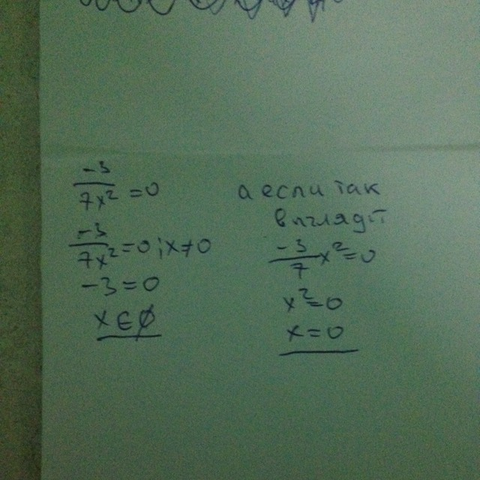 -3/7x² = 0
-3/7x² = 0; x ≠ 0
-3 = 0
x ∈ ∅
а если так
выглядит
-3/7 x² = 0
x² = 0
x = 0